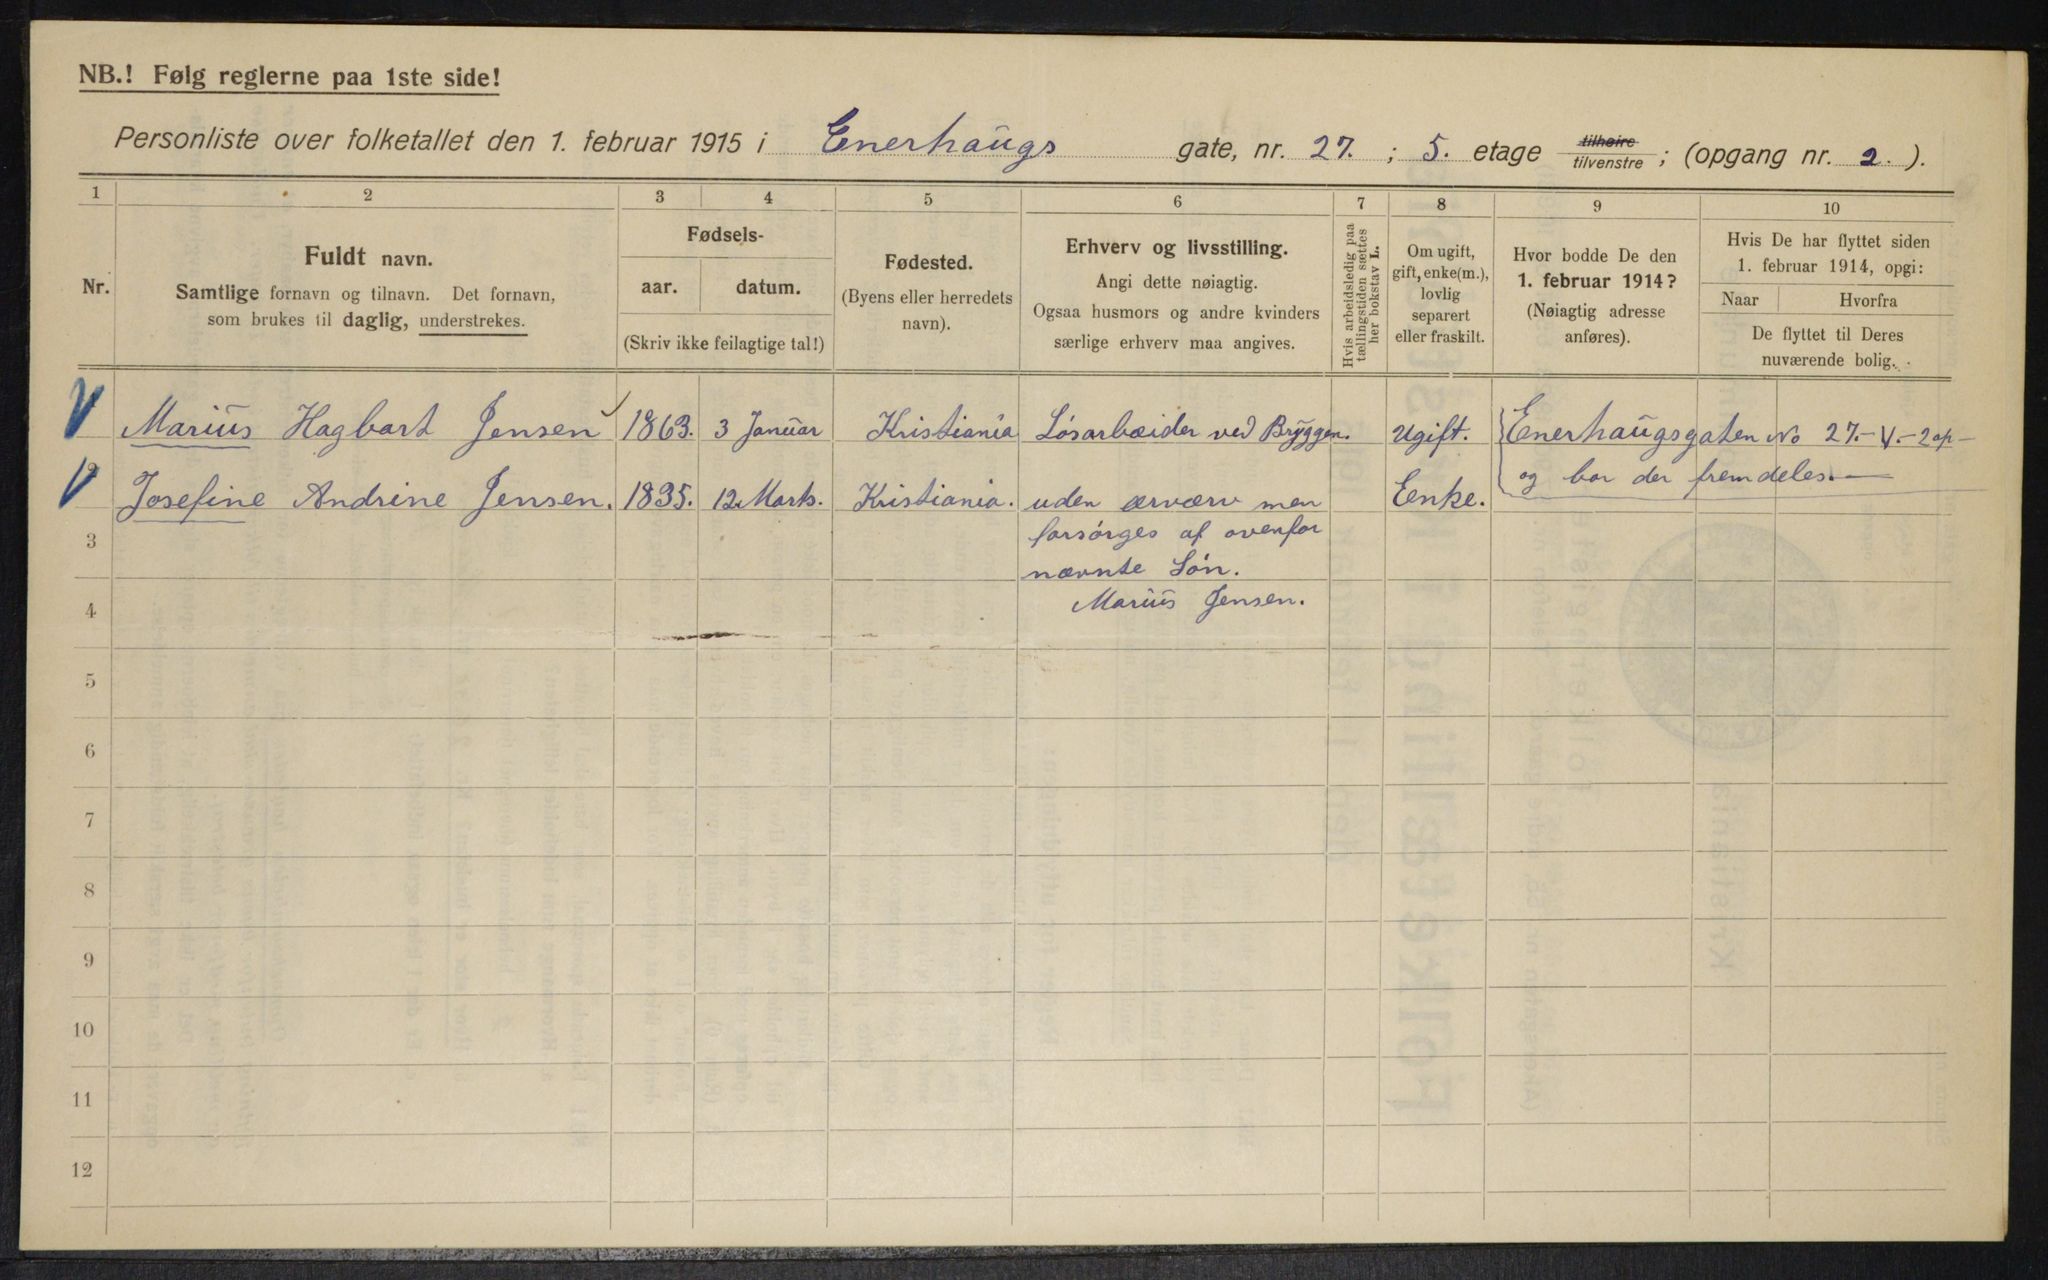 NB.! Følg reglerne paa 1ste side!
Personliste over folketallet den 1. februar 1915 i Enerhaugs gate, nr. 27. ; 5. etage tilhøire tilvenstre ; (opgang nr. 2. ).
1 2 3 4 5 6 7 8 9 10
Nr.
Fuldt navn.
Samtlige fornavn og tilnavn. Det fornavn,
som brukes til daglig, understrekes.
Fødsels-
aar. datum.
(Skriv ikke feilagtige tal!)
Fødested.
(Byens eller herredets
navn).
Erhverv og livsstilling.
Angi dette nøiagtig.
Ogsaa husmors og andre kvinders
særlige erhverv maa angives.
Hvis arbeidsledig paa
tællingstiden sættes
her bokstav L.
Om ugift,
gift, enke(m.),
lovlig
separert
eller fraskilt.
Hvor bodde De den
1. februar 1914?
(Nøiagtig adresse
anføres).
Hvis De har flyttet siden
1. februar 1914, opgi:
Naar Hvorfra
De flyttet til Deres
nuværende bolig.
Marius Hagbart Jensen 1863. 3 Januar Kristiania Løsarbæider ved Bryggen. Ugift. Enerhaugsgaten No 27.- V.- 2 op-
og bor der fremdeles.
2 Josefine Andrine Jensen. 1835. 12 Marts. Kristiania. uden ærværv men Eenke.
3 forsørges af ovenfor
nævnte Søn.
4 Marius Jensen.
5
6
7
8
9
10
11
12